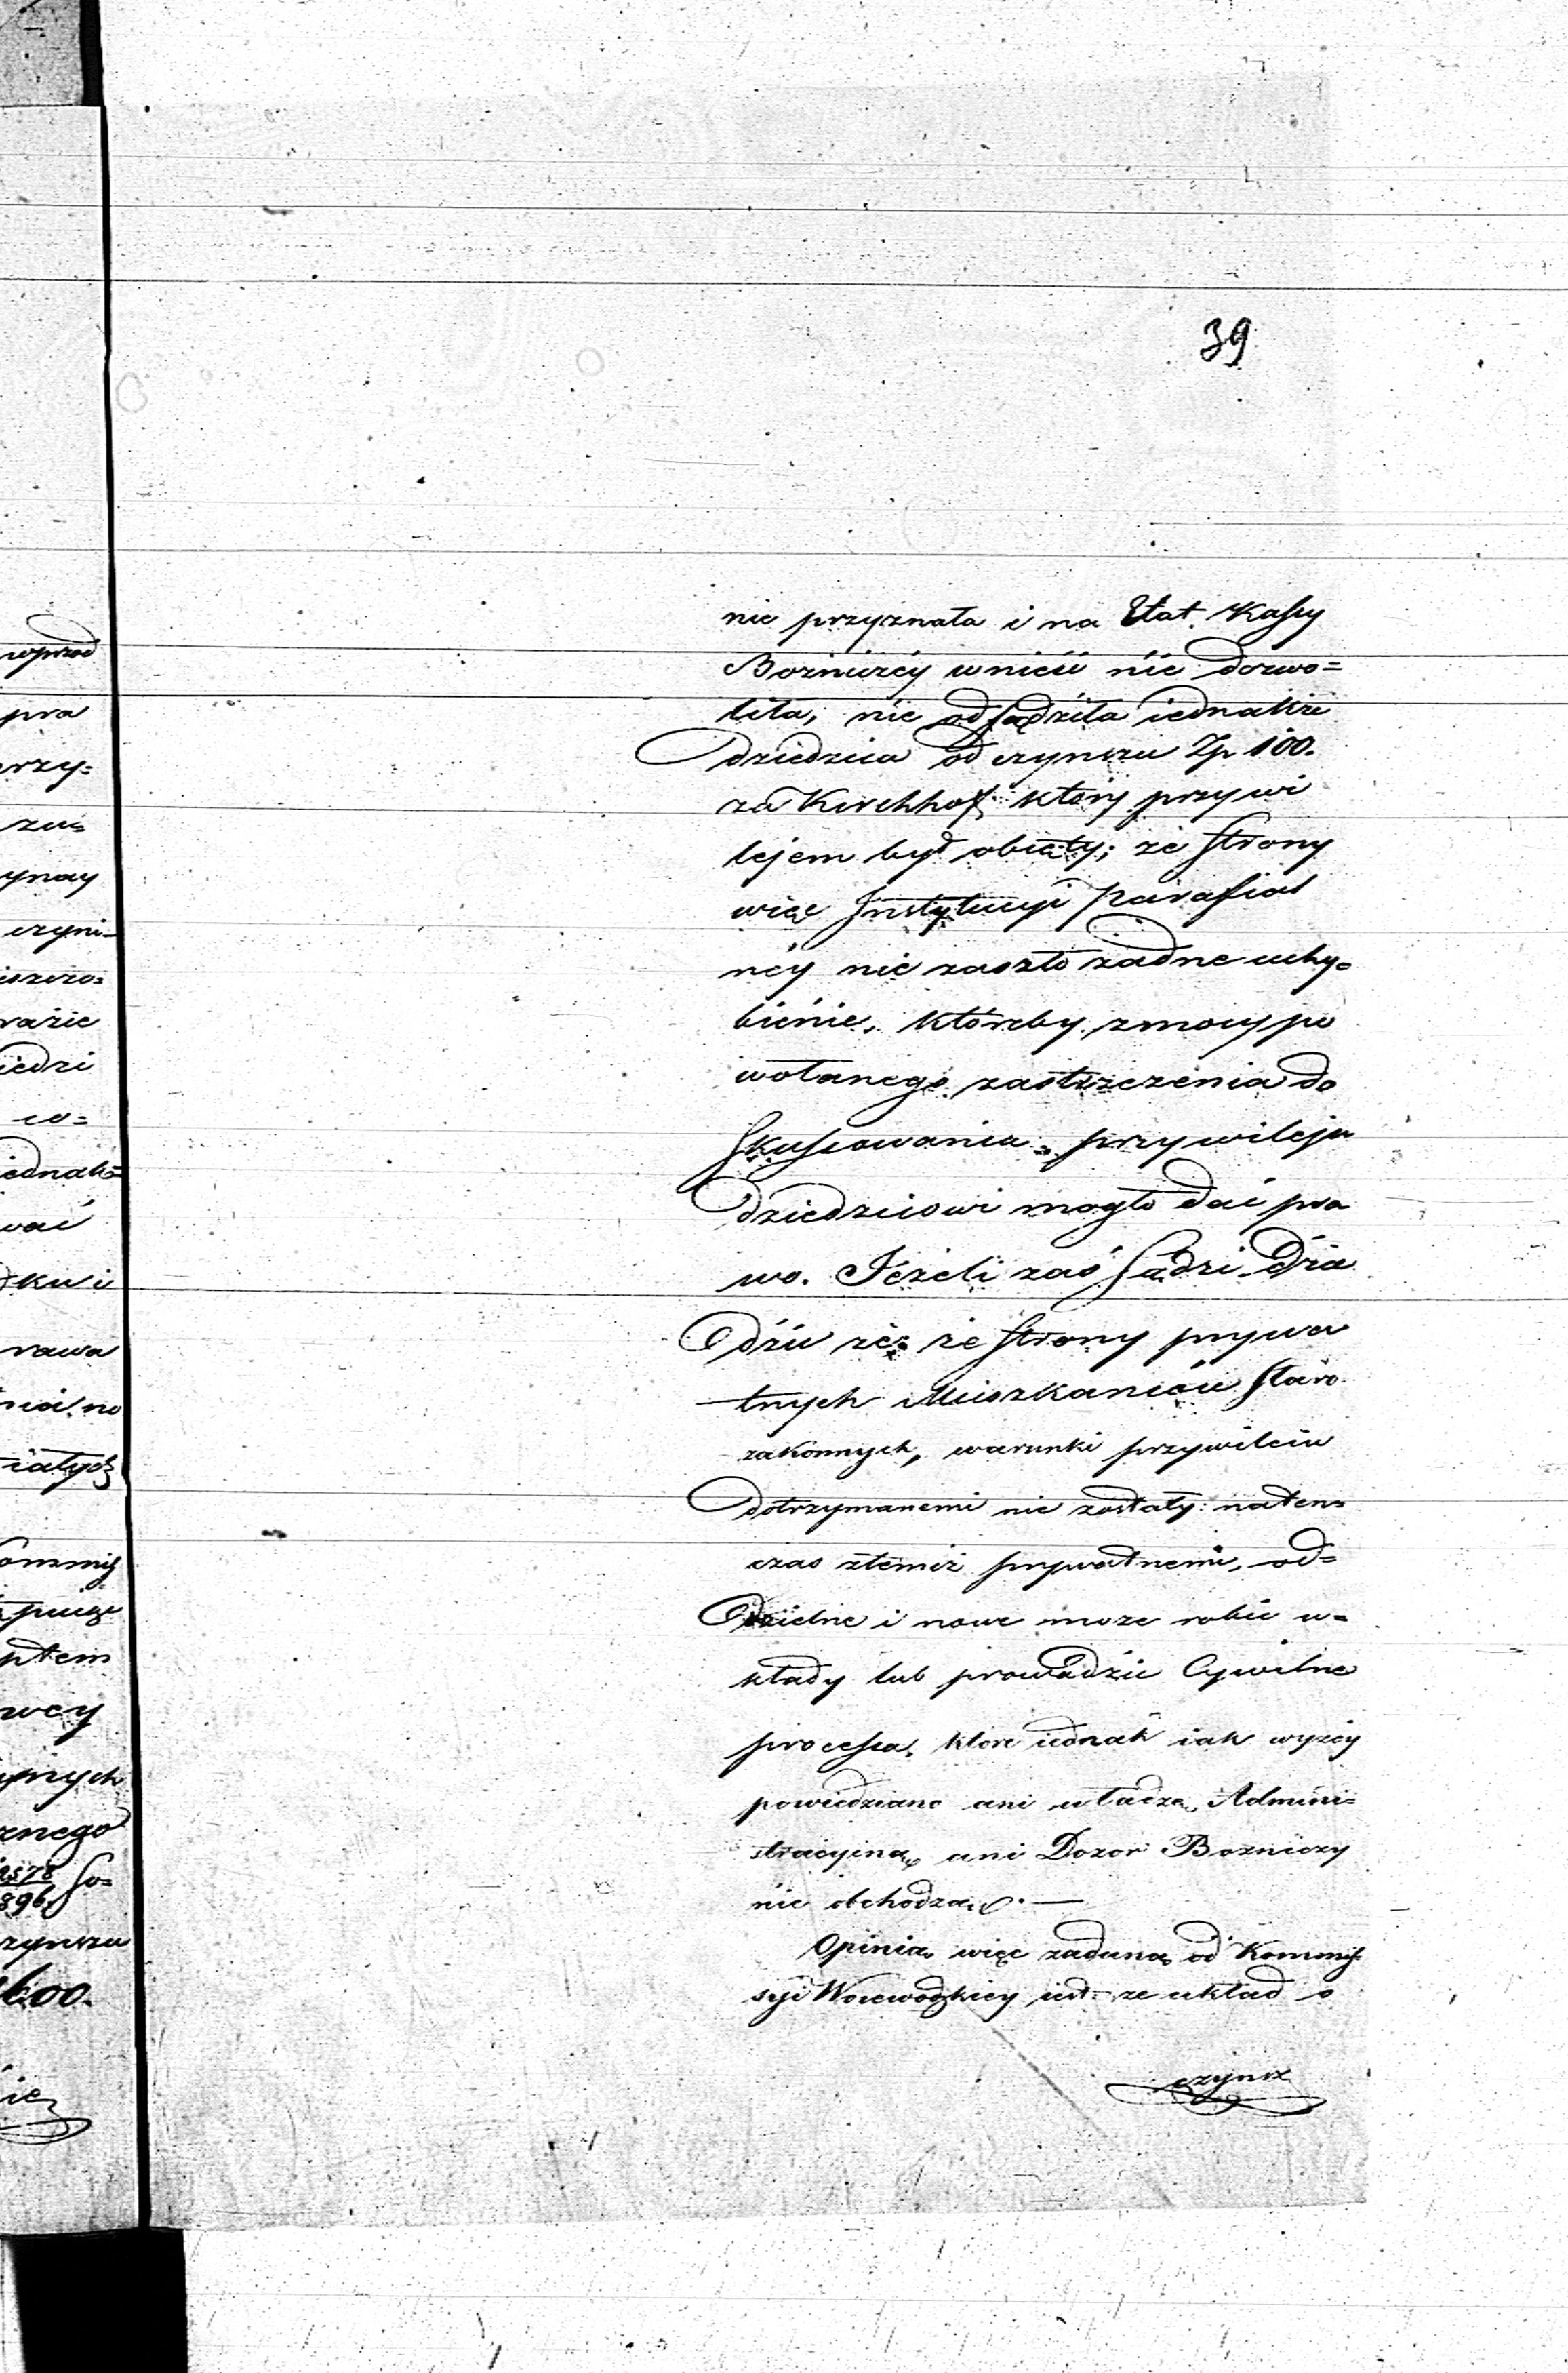 39
nie przyznała i na Etat Kassy
Bozniczéy wnieść nie dozwo=
liła, nie odsądziła iednakże
dziedzica od czynszu Zp 100.
za Kirchhof, który przywi
lejem był obięty; ze strony
więc Instytucyi Parafial
néy nie zaszło żadne uchy=
bienie, któreby z mocy po
wołanego zastrzeżenia do
skassowania przywileju
dziedzicowi mogło dać pra
wo. Jeżeli zaś sądzi Dzie
dzic że ze strony prywa
tnych Mieszkańców Staro
zakonnych, warunki przywileiu
dotrzymanemi nie zostały: naten=
czas z temiż prywatnemi, od=
dzielne i nowe może robić u=
kłady lub prowadzić Cywilne
processa, które iednak iak wyżéy
powiedziano ani władzę Admini=
stracyiną, ani Dozor Bozniczy
nie obchodzą. —
Opinią więc żądaną od Kommis
syi Woiewodzkiey iest że układ o
czynsz
wprzód
pra
rzy=
zu=
czyni=
ważie
iedzi
co=
iednak=
wać
ku i
rawa
iałych
ommis
ptem
wey
znego
1578
896 So=
zynszu
1600.